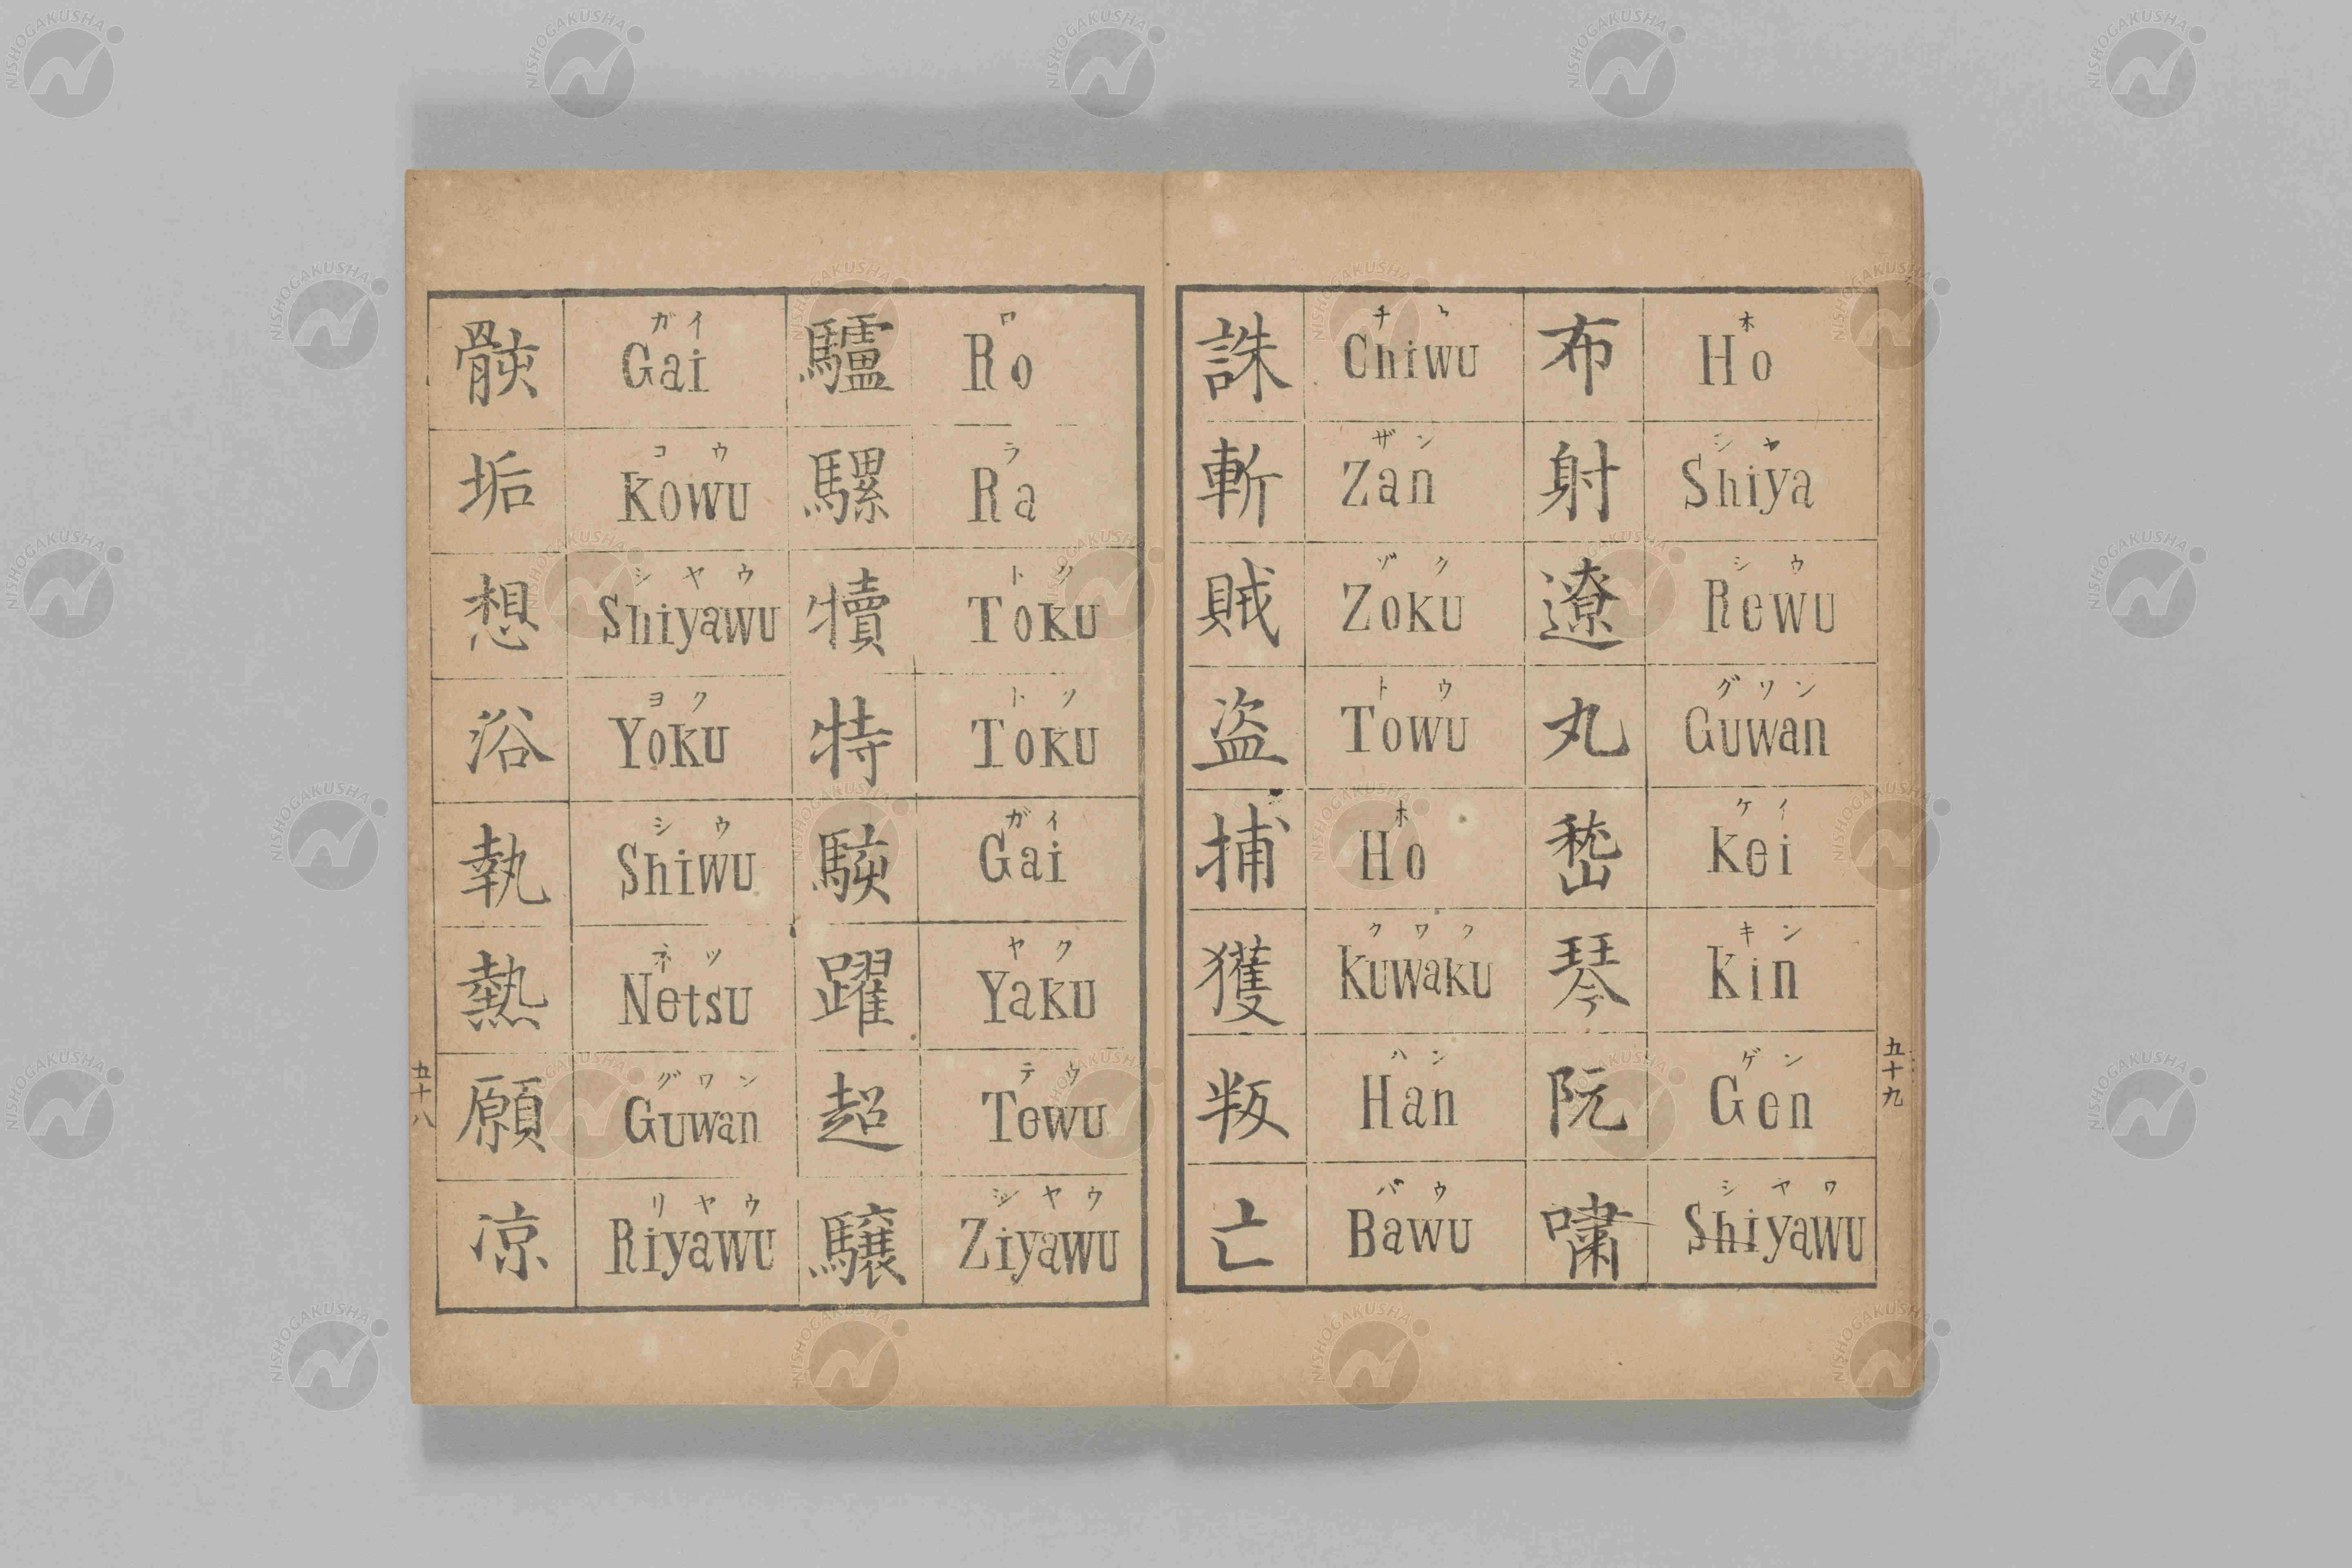 ガイ
骸 Gai
コウ
垢 Kowu
シヤウ
想 Shiyawu
ヨク
浴 Yoku
シウ
執 Shiwu
ネツ
熱 Netsu
グワン
願 Guwan
リヤウ
凉 Riyawu
五十八
ロ
驢 Ro
ラ
騾 Ra
トク
犢 Toku
トク
特 Toku
ガイ
駭 Gai
ヤク
躍 Yaku
テウ
超 Tewu
ジヤウ
驤 Ziyawu
チ
誅 Chiwu
ザン
斬 Zan
ゾク
賊 Zoku
トウ
盗 Towu
ホ
捕 Ho
クワク
獲 Kuwaku
ハン
叛 Han
バウ
亡 Bawu
ホ
布 Ho
シヤ
射 Shiya
シウ
遼 Rewu
グワン
丸 Guwan
ケイ
嵆 Kei
キン
琴 Kin
ゲン
阮 Gen
シヤウ
嘯 Shiyawu
五十九
NISHOGAKUSHA